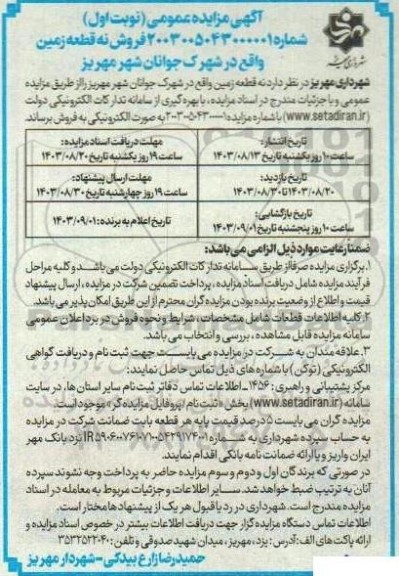 آگهی مزایده عمومی (نوبت اول)
شماره ۲۰۰۳۰۰۵۰۴۳۰۰۰۰۰۱ فروش نه قطعه زمین
واقع در شهرک جوانان شهر مهریز
شهرداری مهریز
شهرداری مهریز در نظر دارد نه قطعه زمین واقع در شهرک جوانان شهر مهریز را از طریق مزایده
عمومی و با جزئیات مندرج در اسناد مزایده، با بهره گیری از سامانه تدارکات الکترونیکی دولت
(www.setadiran.ir) با شماره مزایده به صورت الکترونیکی به فروش برساند
تاریخ انتشار:
ساعت ۱۰ روز یکشنبه تاریخ ۱۴۰۳/۰۸/۱۳
مهلت دریافت اسناد مزایده:
ساعت ۱۹ روز یکشنبه تاریخ ۱۴۰۳/۰۸/۲۰
تاریخ بازدید:
۱۴۰۳/۰۸/۲۰ تا ۱۴۰۳/۰۸/۳۰
مهلت ارسال پیشنهاد:
ساعت ۱۹ روز چهارشنبه تاریخ ۱۴۰۳/۰۸/۳۰
تاریخ بازگشایی:
ساعت ۱۰ روز پنجشنبه تاریخ ۱۴۰۳/۰۹/۰۱
تاریخ اعلام به برنده: ۱۴۰۳/۰۹/۰۱
ضمنا رعایت موارد ذیل الزامی می باشد:
۱. برگزاری مزایده صرفا از طریق سامانه تدارکات الکترونیکی دولت می باشد و کلیه مراحل
فرآیند مزایده شامل دریافت اسناد مزایده، پرداخت تضمین شرکت در مزایده، ارسال پیشنهاد
قیمت و اطلاع از وضعیت برنده بودن مزایده گران محترم از این طریق امکان پذیر می باشد.
۲. کلیه اطلاعات قطعات شامل مشخصات، شرایط و نحوه فروش در برد اعلان عمومی
سامانه مزایده قابل مشاهده، بررسی و انتخاب می باشد.
۳. علاقه مندان به شرکت در مزایده می بایست جهت ثبت نام و دریافت گواهی
الکترونیکی (توکن) با شماره های ذیل تماس حاصل نمایند:
مرکز پشتیبانی و راهبری: ۱۴۵۶ - اطلاعات تماس دفاتر ثبت نام سایر استان ها، در سایت
سامانه (www.setadiran.ir) بخش «ثبت نام / پروفایل مزایده گر» موجود است.
مزایده گران می بایست ۵ درصد قیمت پایه هر قطعه بابت ضمانت شرکت در مزایده
به حساب سپرده شهرداری به شماره نزد بانک مهر
ایران واریز و یا ارائه ضمانت نامه بانکی اقدام نمایند.
در صورتی که برندگان اول و دوم و سوم مزایده حاضر به پرداخت وجه نشوند سپرده
آنان به ترتیب ضبط خواهد شد. سایر اطلاعات و جزئیات مربوط به معامله در اسناد
مزایده مندرج است. شهرداری در رد یا قبول هر یک از پیشنهادها مختار است.
اطلاعات تماس دستگاه مزایده گزار جهت دریافت اطلاعات بیشتر در خصوص اسناد مزایده و
ارائه پاکت های الف: آدرس: یزد، مهریز، میدان شهید صدوقی و تلفن: ۳۵۳۲۵۲۲۰۴۰
حمیدرضا زارع بیدکی - شهردار مهریز